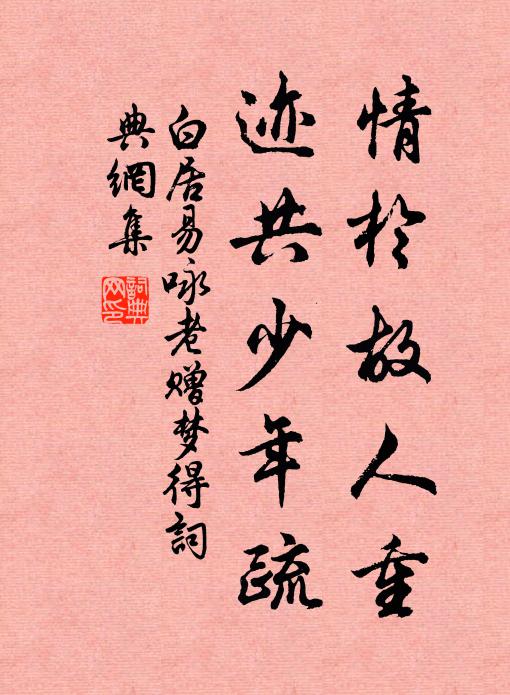 情於故人重
迹共少年疏
白居易咏老赠梦得詞
典網集
詞典
网印